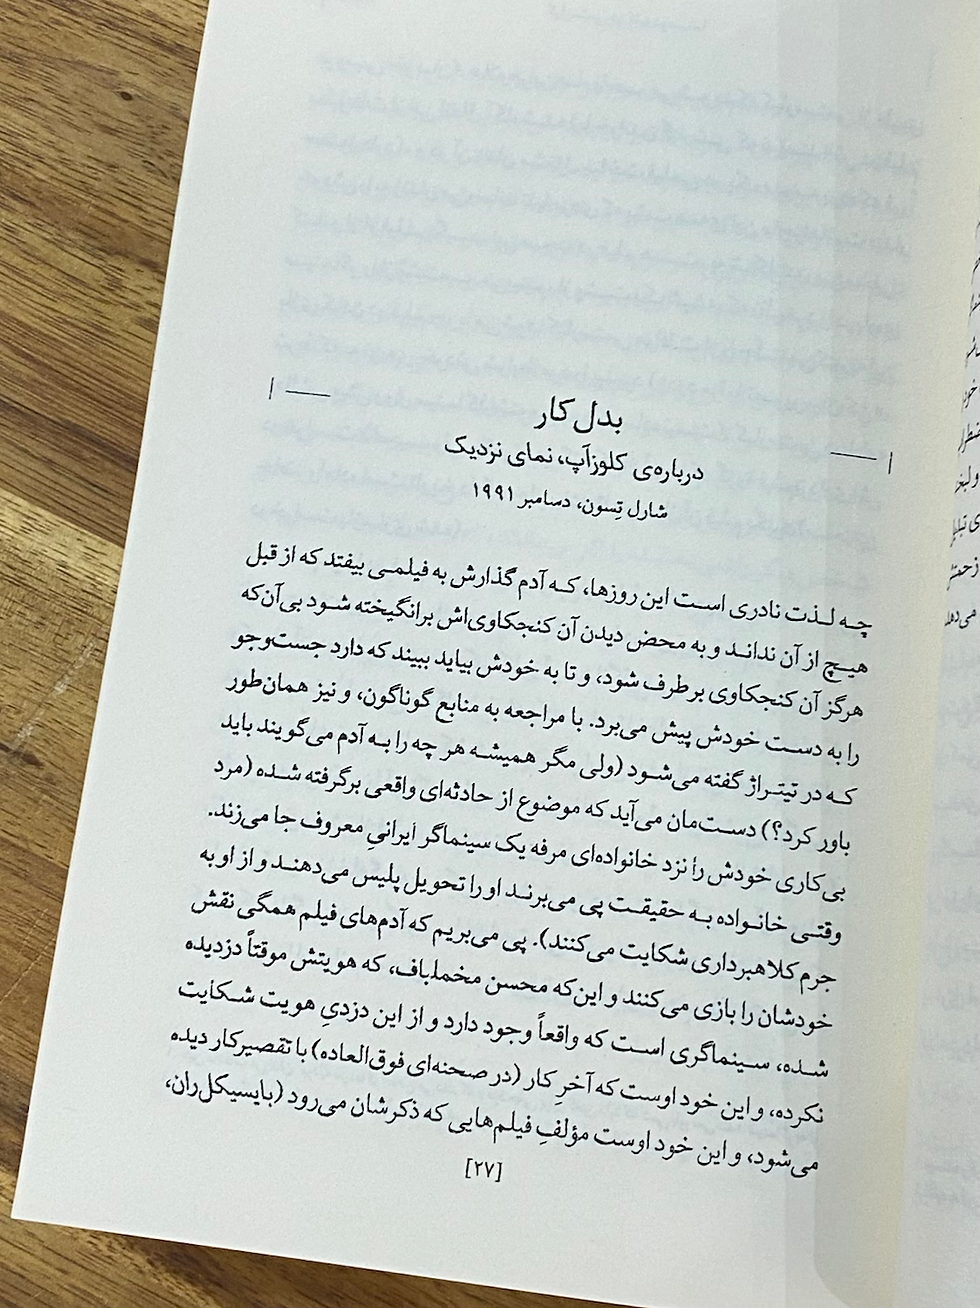 بدل کار
درباره‌ی کلوزآپ، نمای نزدیک
شارل تِسون، دسامبر ۱۹۹۱
چه لذت نادری است این روزها، که آدم گذارش به فیلمی بیفتد که از قبل
هیچ از آن نداند و به محض دیدن آن کنجکاوی‌اش برانگیخته شود بی‌آن‌که
هرگز آن کنجکاوی برطرف شود، و تا به خودش بیاید ببیند که دارد جست‌وجو
را به دست خودش پیش می‌برد. با مراجعه به منابع گوناگون، و نیز همان‌طور
که در تیتراژ گفته می‌شود (ولی مگر همیشه هر چه را به آدم می‌گویند باید
باور کرد؟) دست‌مان می‌آید که موضوع از حادثه‌ای واقعی برگرفته شده (مرد
بی‌کاری خودش را نزد خانواده‌ای مرفه یک سینماگر ایرانیِ معروف جا می‌زند.
وقتی خانواده به حقیقت پی می‌برند او را تحویل پلیس می‌دهند و از او به
جرم کلاهبرداری شکایت می‌کنند). پی می‌بریم که آدم‌های فیلم همگی نقش
خودشان را بازی می‌کنند و این‌که محسن مخملباف، که هویتش موقتاً دزدیده
شده، سینماگری است که واقعاً وجود دارد و از این دزدیِ هویت شکایت
نکرده، و این خود اوست که آخرِ کار (در صحنه‌ای فوق‌العاده) با تقصیرکار دیده
می‌شود، و این خود اوست مؤلفِ فیلم‌هایی که ذکرشان می‌رود (بایسیکل‌ران،
[۲۷]